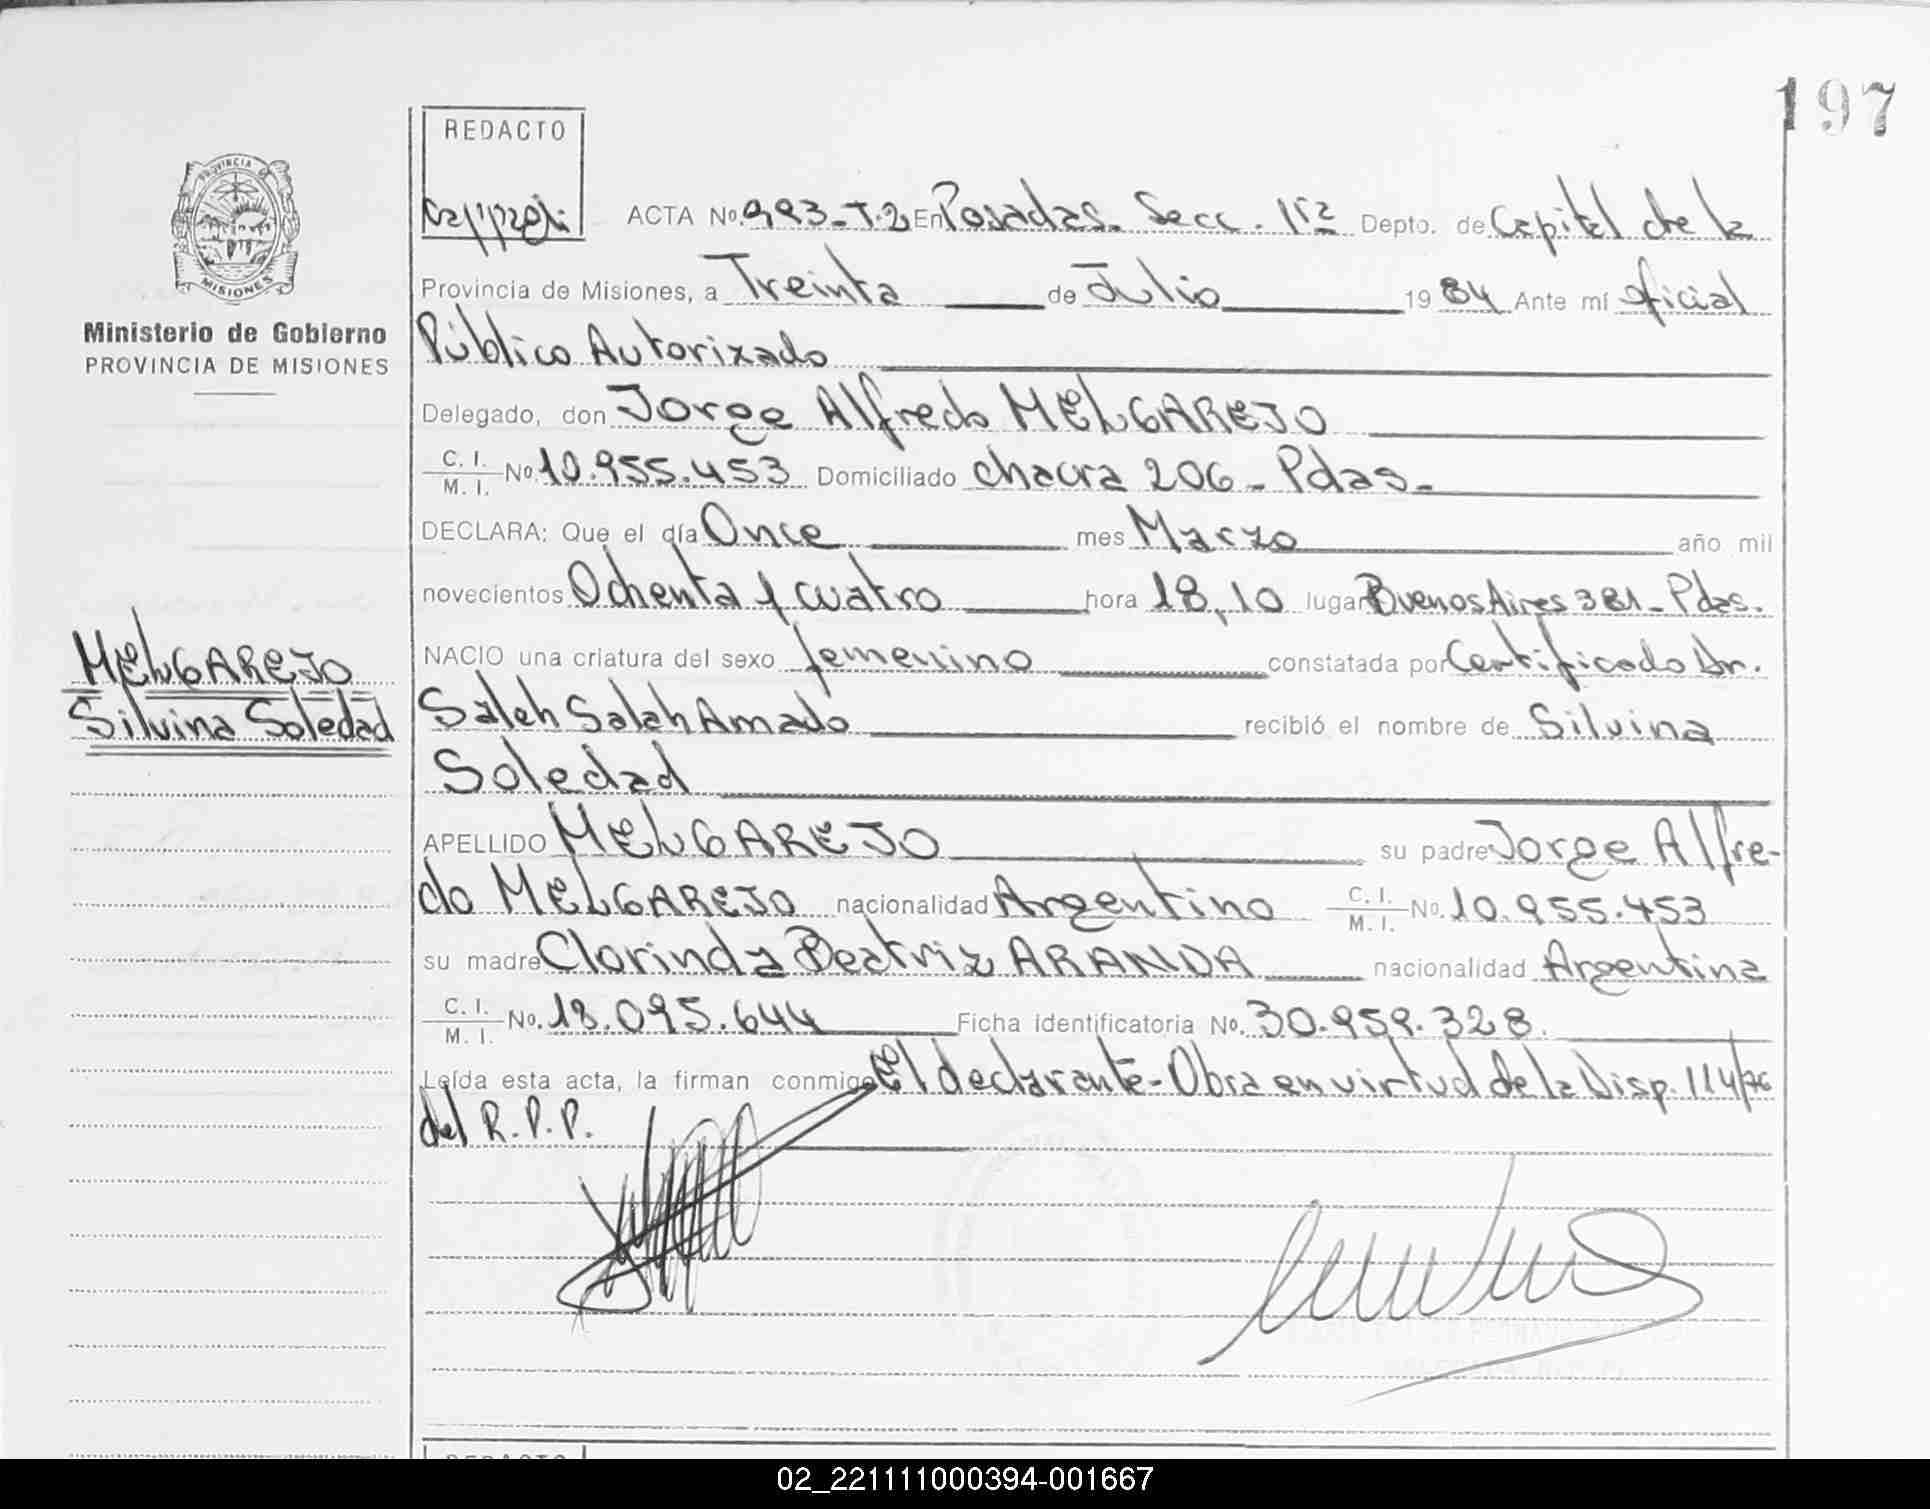 197
REDACTO
PROVINCIA
MISIONES
Ministerio de Gobierno
PROVINCIA DE MISIONES
ACTA No. 993-T.2 En Posadas. Secc. 1ra Depto. de Capital de la
Provincia de Misiones, a Treinta de Julio 1984 Ante mí oficial
Público Autorizado
Delegado, don Jorge Alfredo MELGAREJO
C. I. M. I. No. 10.955.453 Domiciliado chacra 206 - Pdas -
DECLARA: Que el día Once mes Marzo año mil
novecientos Ochenta y cuatro hora 18,10 lugar Buenos Aires 381 - Pdas.
NACIO una criatura del sexo femenino constatada por Certificado Dr.
Saleh Salah Amado recibió el nombre de Silvina
Soledad
MELGAREJO
Silvina Soledad
APELLIDO MELGAREJO su padre Jorge Alfre-
do MELGAREJO nacionalidad Argentino C. I. M. I. No. 10.955.453
su madre Clorinda Beatriz ARANDA nacionalidad Argentina
C. I. M. I. No. 18.095.644 Ficha identificatoria No. 30.959.328.
Leída esta acta, la firman conmigo El declarante - Obra en virtud de la Disp. 114/76
del R.P.P.
REDACTO
02_221111000394-001667